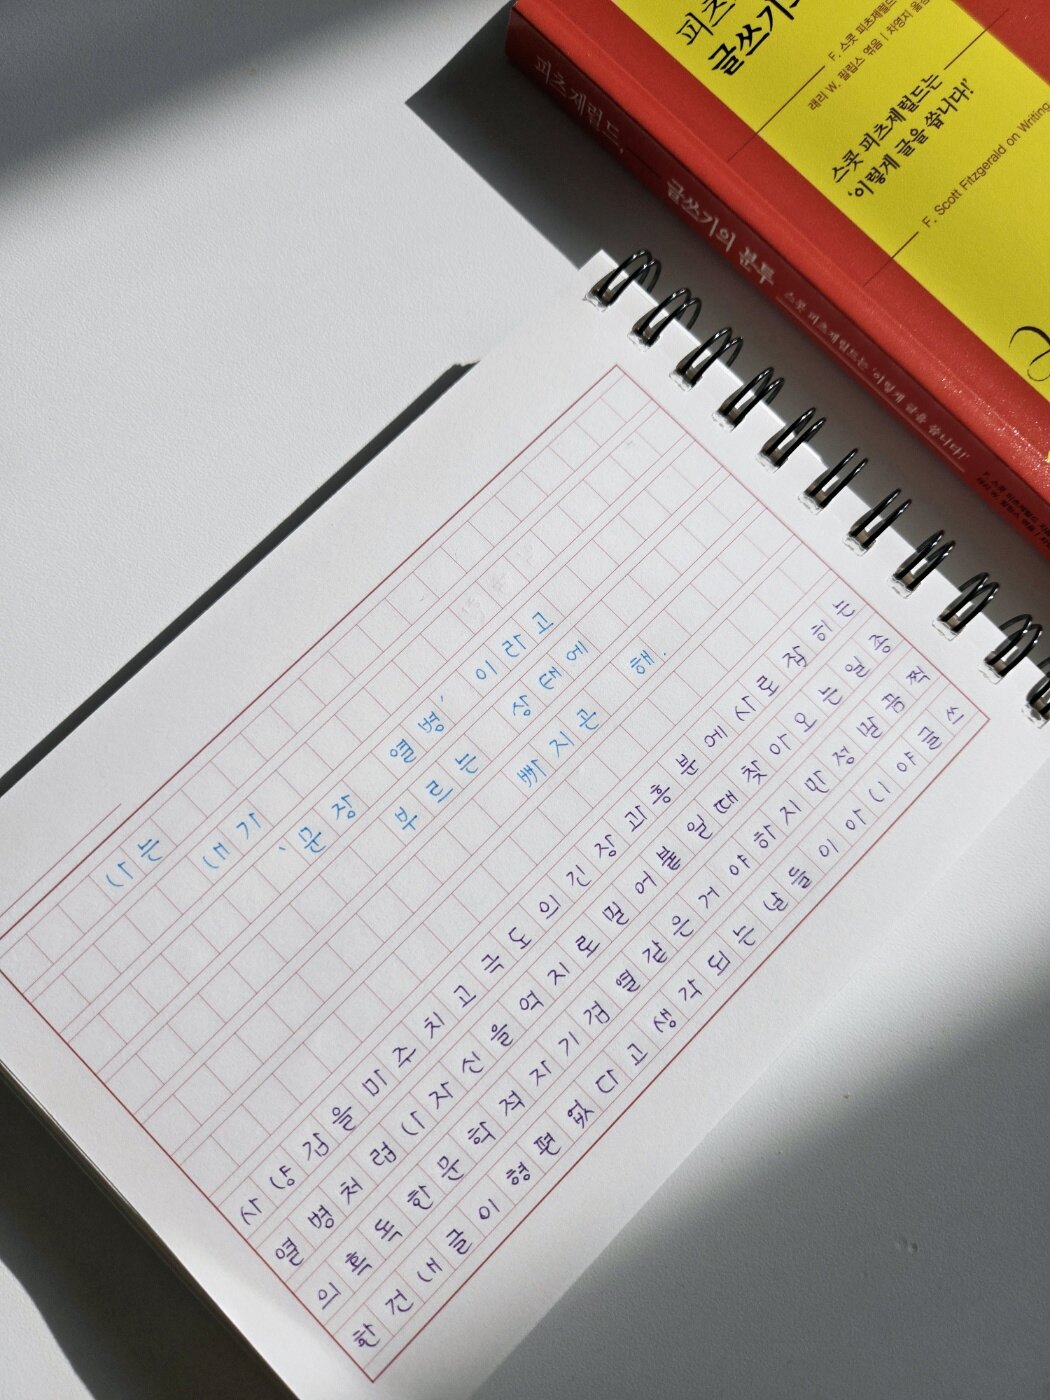 피츠
글쓰기의
F. 스콧 피츠제럴드
래리 W. 필립스 엮음 | 차영지 옮김
스콧 피츠제럴드는
'이렇게 글을 씁니다!'
F. Scott Fitzgerald on Writing
피츠제럴드, 글쓰기의 분투 스콧 피츠제럴드는 '이렇게 글을 씁니다!'
나는
내가
'문장 열병' 이라고
부르는 상태에
빠지곤 해.
사냥감을마주치고극도의긴장과흥분에사로잡히는
열병처럼나자신을억지로밀어붙일때찾아오는일종
의혹독한문학적자기검열같은거야하지만정말끔찍
한건내글이형편없다고생각되는날들이아니야글쓰